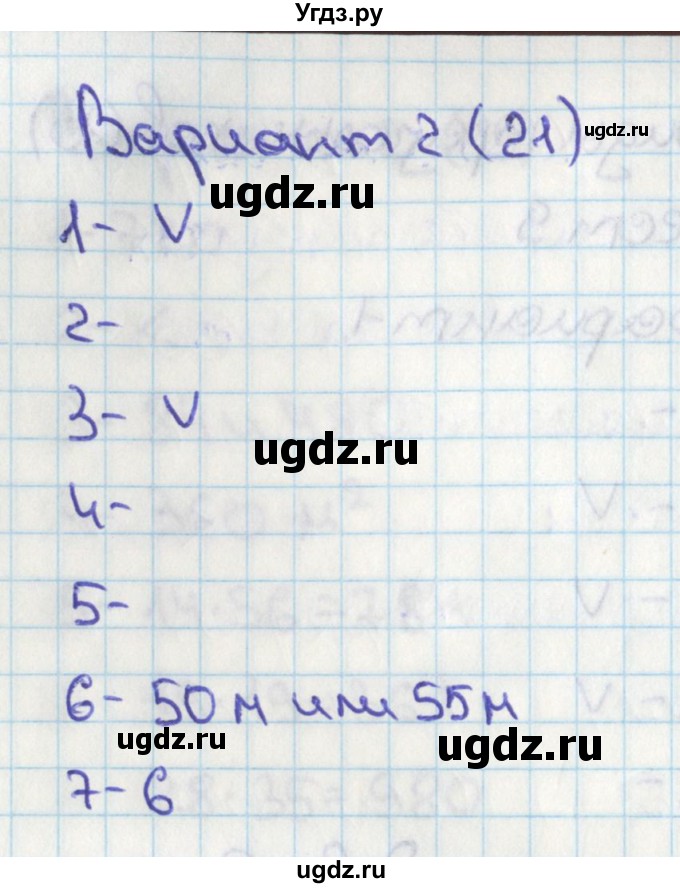 Угдз.ру
Вариант 2 (21)
ugdz.ru
ugdz.ru
1- V
2-
3- V
ugdz.ru
4-
5-
6- 50 м или 55 м
ugdz.ru
ugdz.ru
7- 6
ugdz.ru